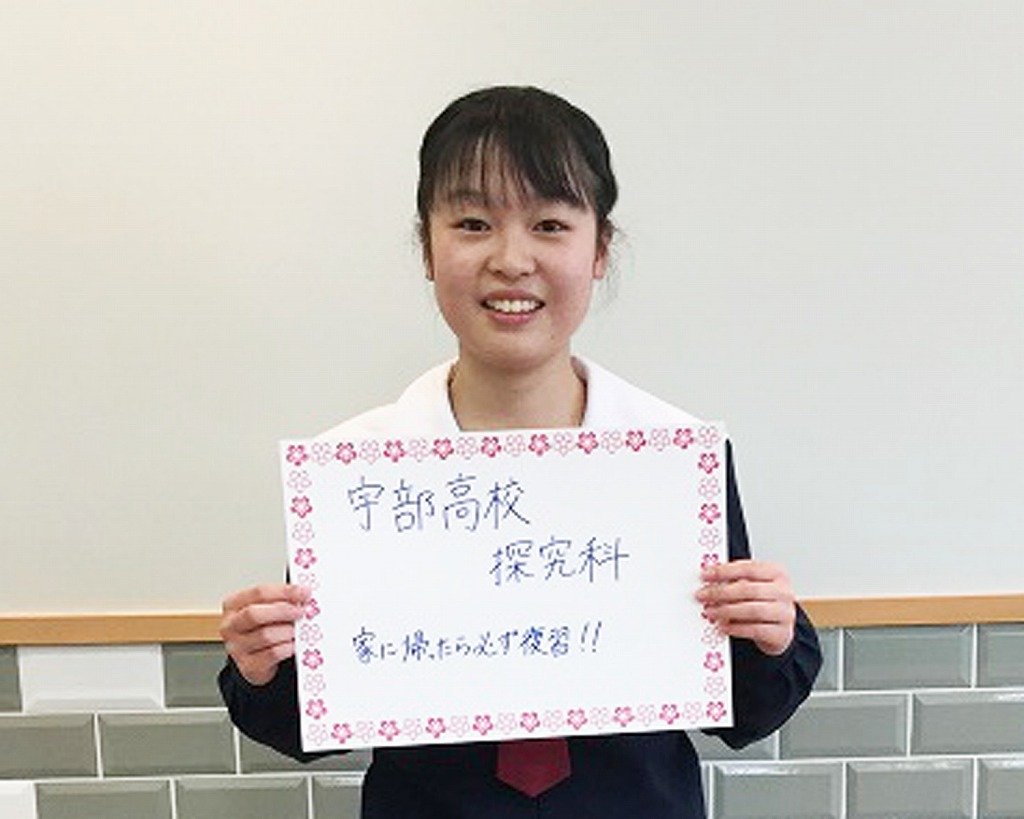 宇部高校
探究科
家に帰ったら必ず復習!!